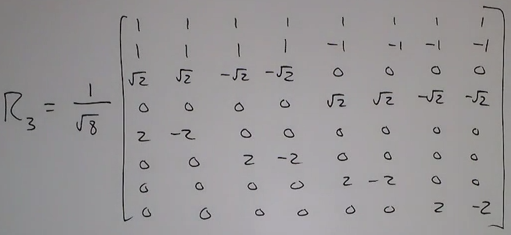 1 1 1 1 1 1 1 1
1 1 1 1 -1 -1 -1 -1
√2 √2 -√2 -√2 0 0 0 0
R₃ = 1/√8 0 0 0 0 √2 √2 -√2 -√2
2 -2 0 0 0 0 0 0
0 0 2 -2 0 0 0 0
0 0 0 0 2 -2 0 0
0 0 0 0 0 0 2 -2